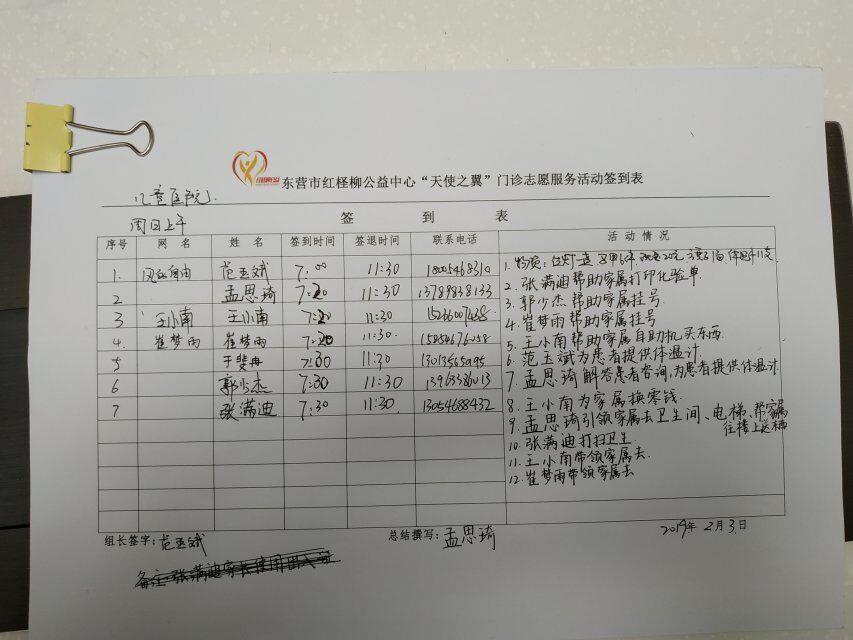 东营市红柽柳公益中心“天使之翼”门诊志愿服务活动签到表
儿童医院
周日上午
签 到 表
序号 网 名 姓 名 签到时间 签退时间 联系电话 活 动 情 况
1. 范玉斌 7:00 11:30
2 孟思琦 7:20 11:30 13789838133
3 王小南 王小南 7:20 11:30
4. 崔梦雨 崔梦雨 7:20 11:30
5 于斐冉 7:30 11:30
6 郭少杰 7:30 11:30 13963386013
7 张满迪 7:30 11:30 13054688432
1. 物资:
2. 张满迪帮助家属打印化验单
3. 郭少杰帮助家属挂号
4. 崔梦雨帮助家属挂号
5. 王小南帮助家属自助机买东西
6. 范玉斌为患者提供体温计
7. 孟思琦解答患者咨询,为患者提供体温计
8. 王小南为家属换零钱
9. 孟思琦引领家属去卫生间、电梯、帮家属
往楼上送
10. 张满迪打扫卫生
11. 王小南带领家属去
12. 崔梦雨带领家属去
组长签字: 范玉斌 总结撰写: 孟思琦 2019年2月3日